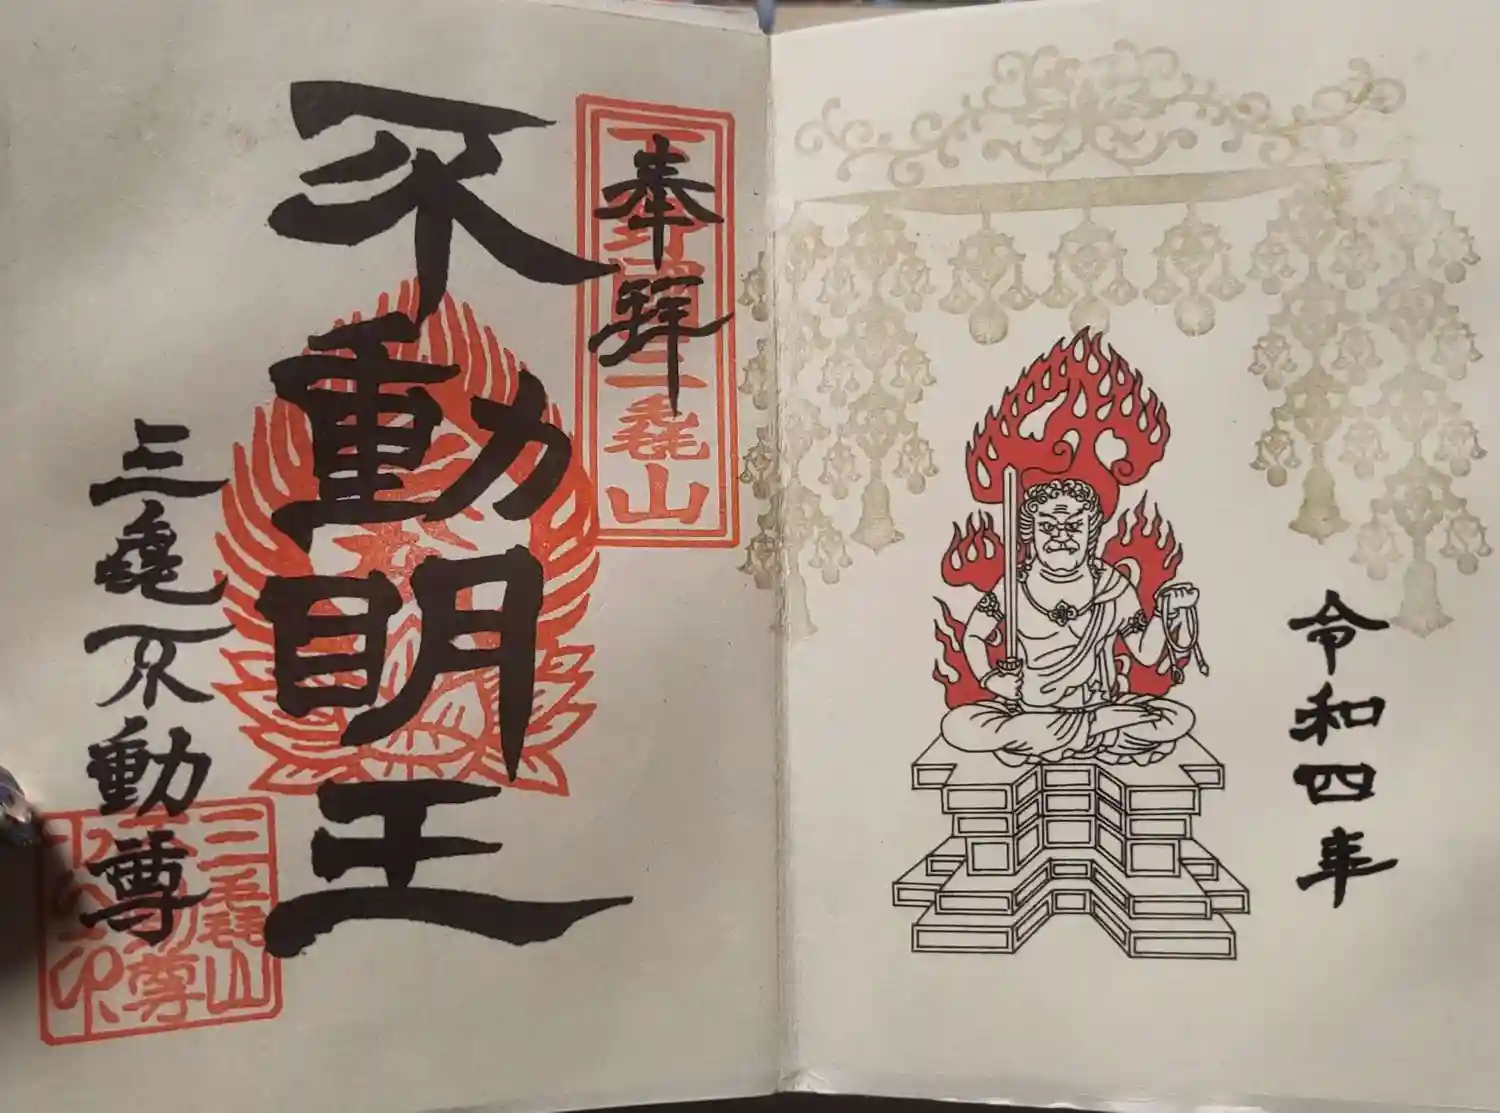 令和四年
奉拝
下野國三毳山
不動明王
三毳不動尊
三毳山
不動尊